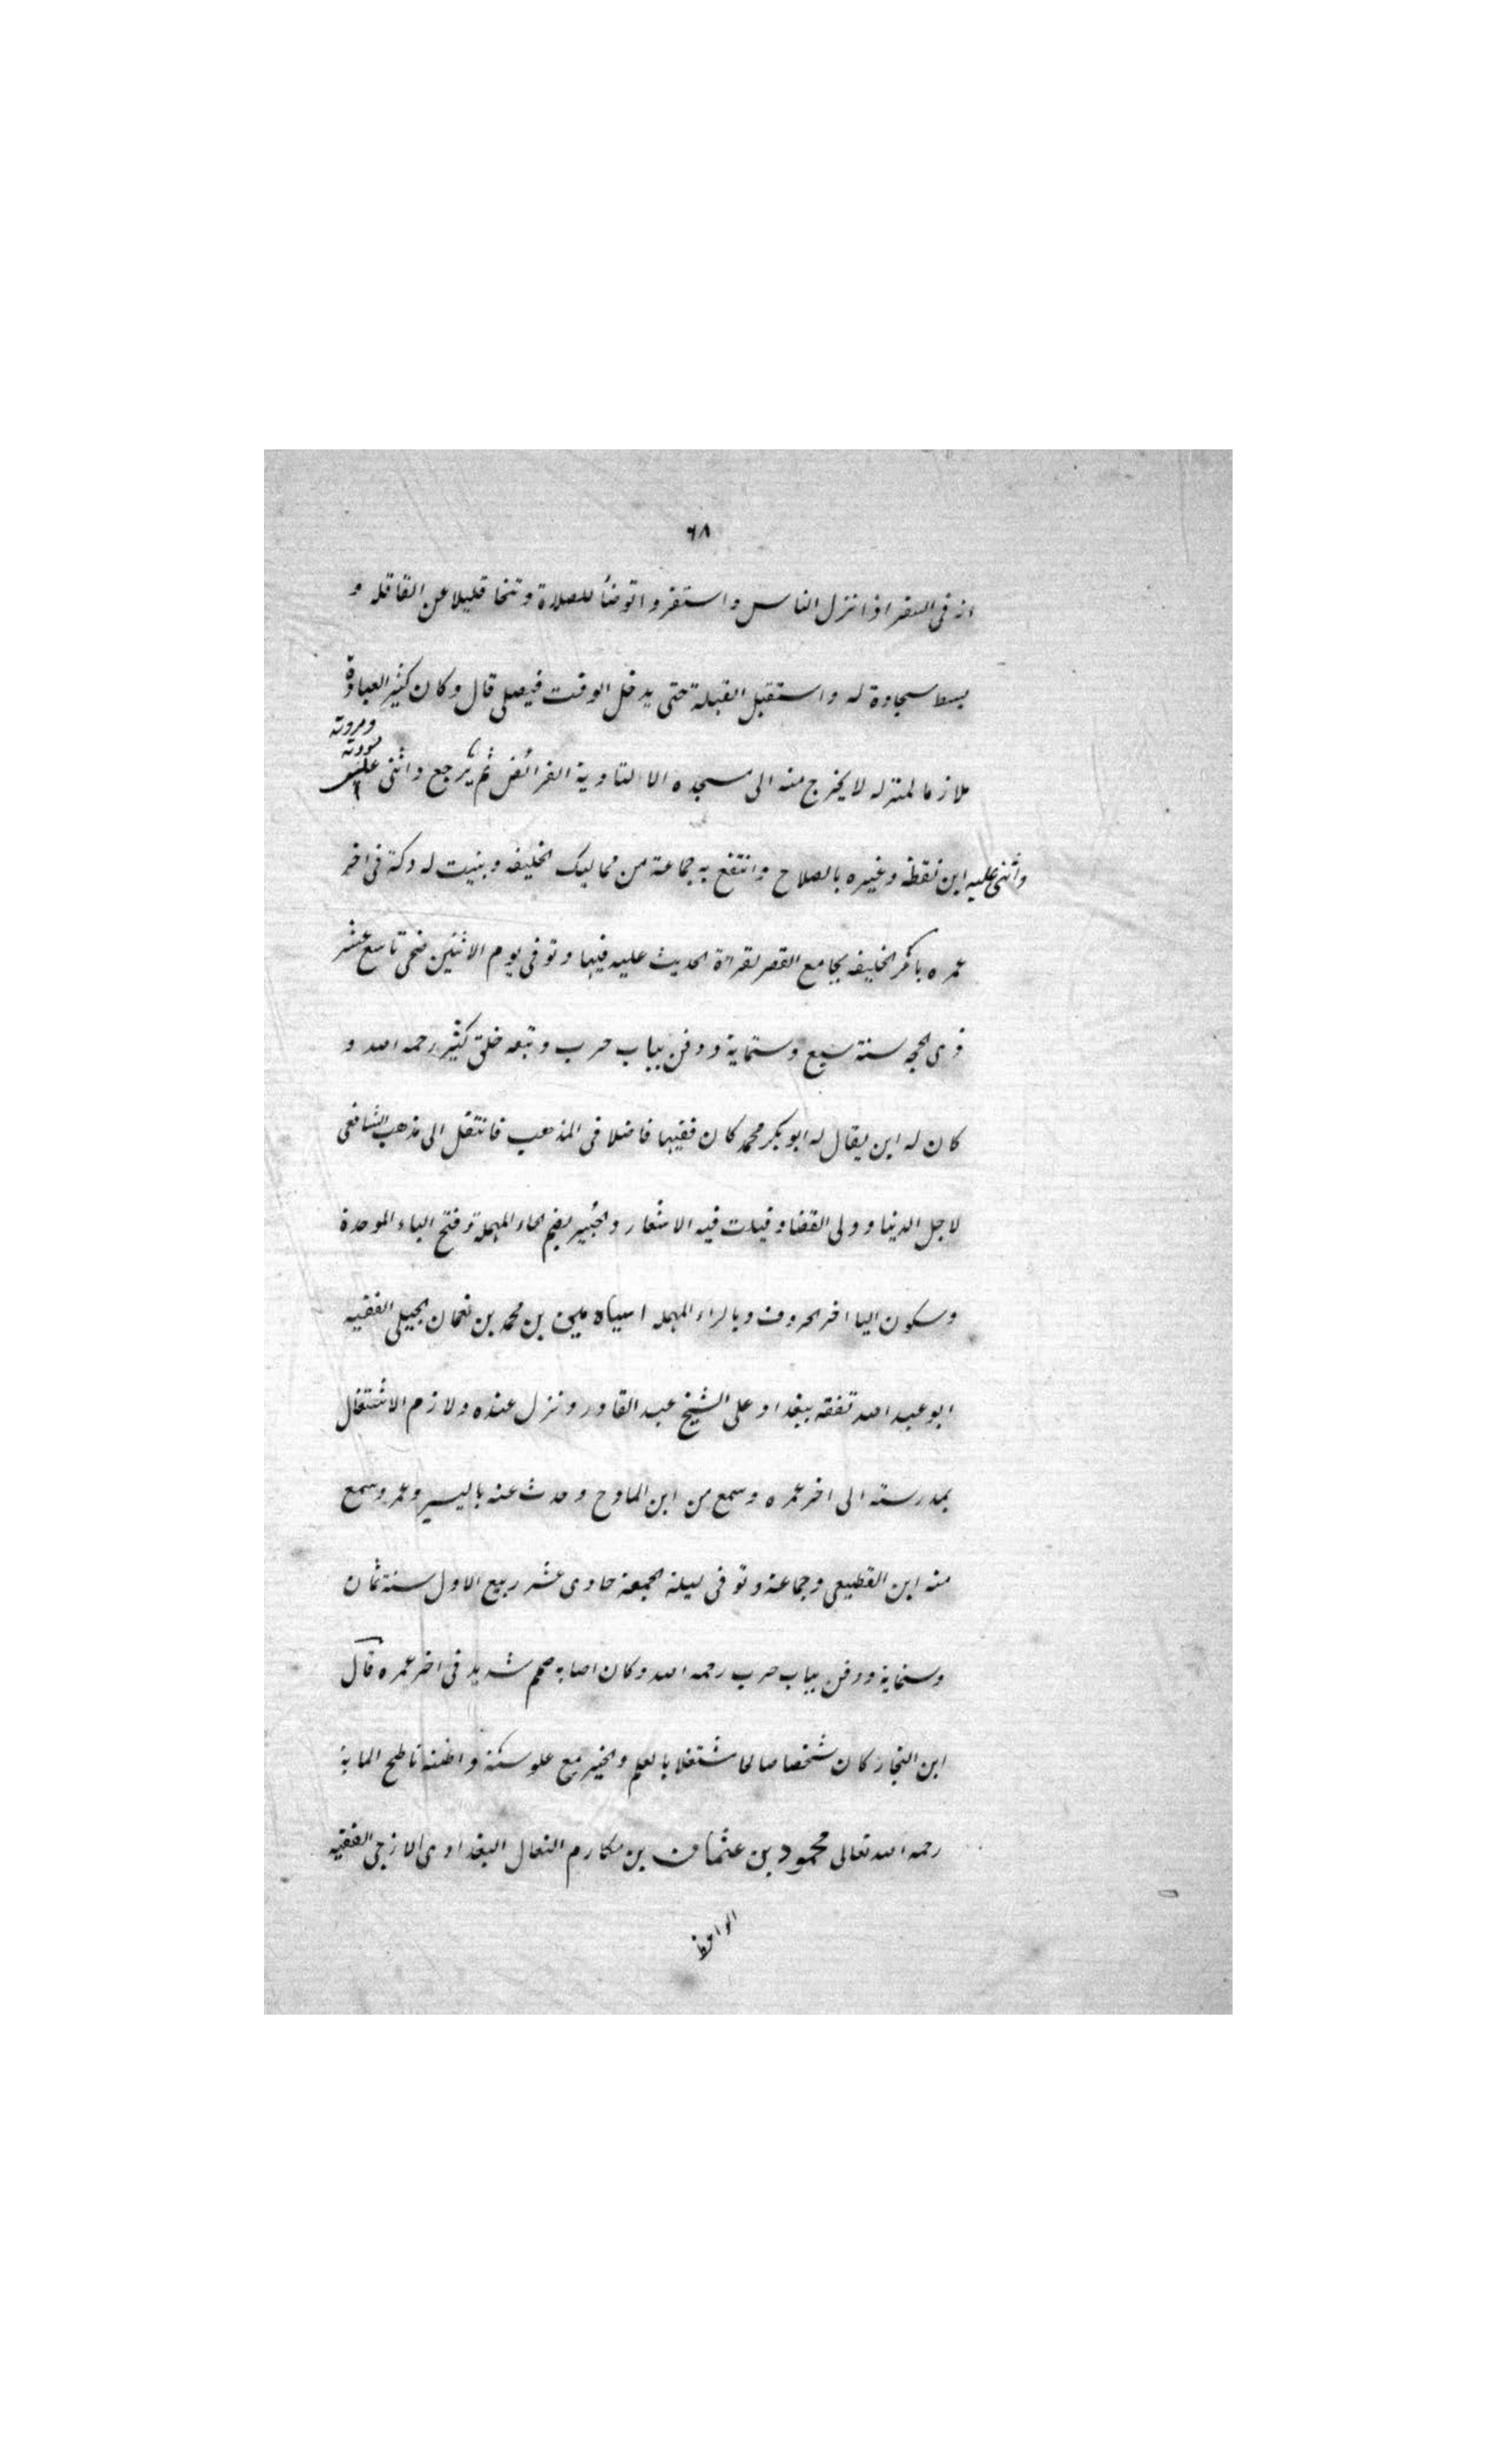 ٦٨
انه في السفر اذا نزل الناس واستقروا توضأ للصلاة وتنحا قليلا عن القافله و
بسط سجادة له واستقبل القبلة حتى يدخل الوقت فيصلي قال وكان كثير العبادة
ملازما لمنزله لا يخرج منه الى مسجده الا لتادية الفرائض ثم يرجع واثنى
ومروته
واثنى عليه ابن نقطة وغيره بالصلاح وانتفع به جماعة من مماليك الخليفه وبنيت له دكة في اخر
عمره بامر الخليفه بجامع القصر لقراة الحديث عليه فيها وتوفي يوم الاثنين ضحى تاسع عشر
ذي الحجه سنة سبع وستماية ودفن بباب حرب وتبعه خلق كثير رحمه الله و
كان له ابن يقال له ابو بكر محمد كان فقيها فاضلا في المذهب فانتقل الى مذهب الشافعي
لاجل الدنيا وولي القضا وقيلت فيه الاشعار والحبير بضم الحاء المهملة وفتح الباء الموحدة
وسكون اليا اخر الحروف وبالراء المهمله اسباه مير بن محمد بن نعمان الجيلي الفقيه
ابو عبد الله تفقه ببغداد على الشيخ عبد القادر ونزل عنده ولازم الاشتغال
بمدرسته الى اخر عمره وسمع من ابن المادح وحدث عنه باليسير وعمر وسمع
منه ابن القطيعي وجماعة وتوفي ليلة الجمعة حادى عشر ربيع الاول سنة ثمان
وستماية ودفن بباب حرب رحمه الله وكان اصابه صمم شديد في اخر عمره قال
ابن النجار كان شخصا صالحا مشتغلا بالعلم والخير مع علو سنه واظنه ناطح الماية
رحمه الله تعالى محمود بن عثمان بن مكارم النعال البغدادي الازجي الفقيه
الواعظ